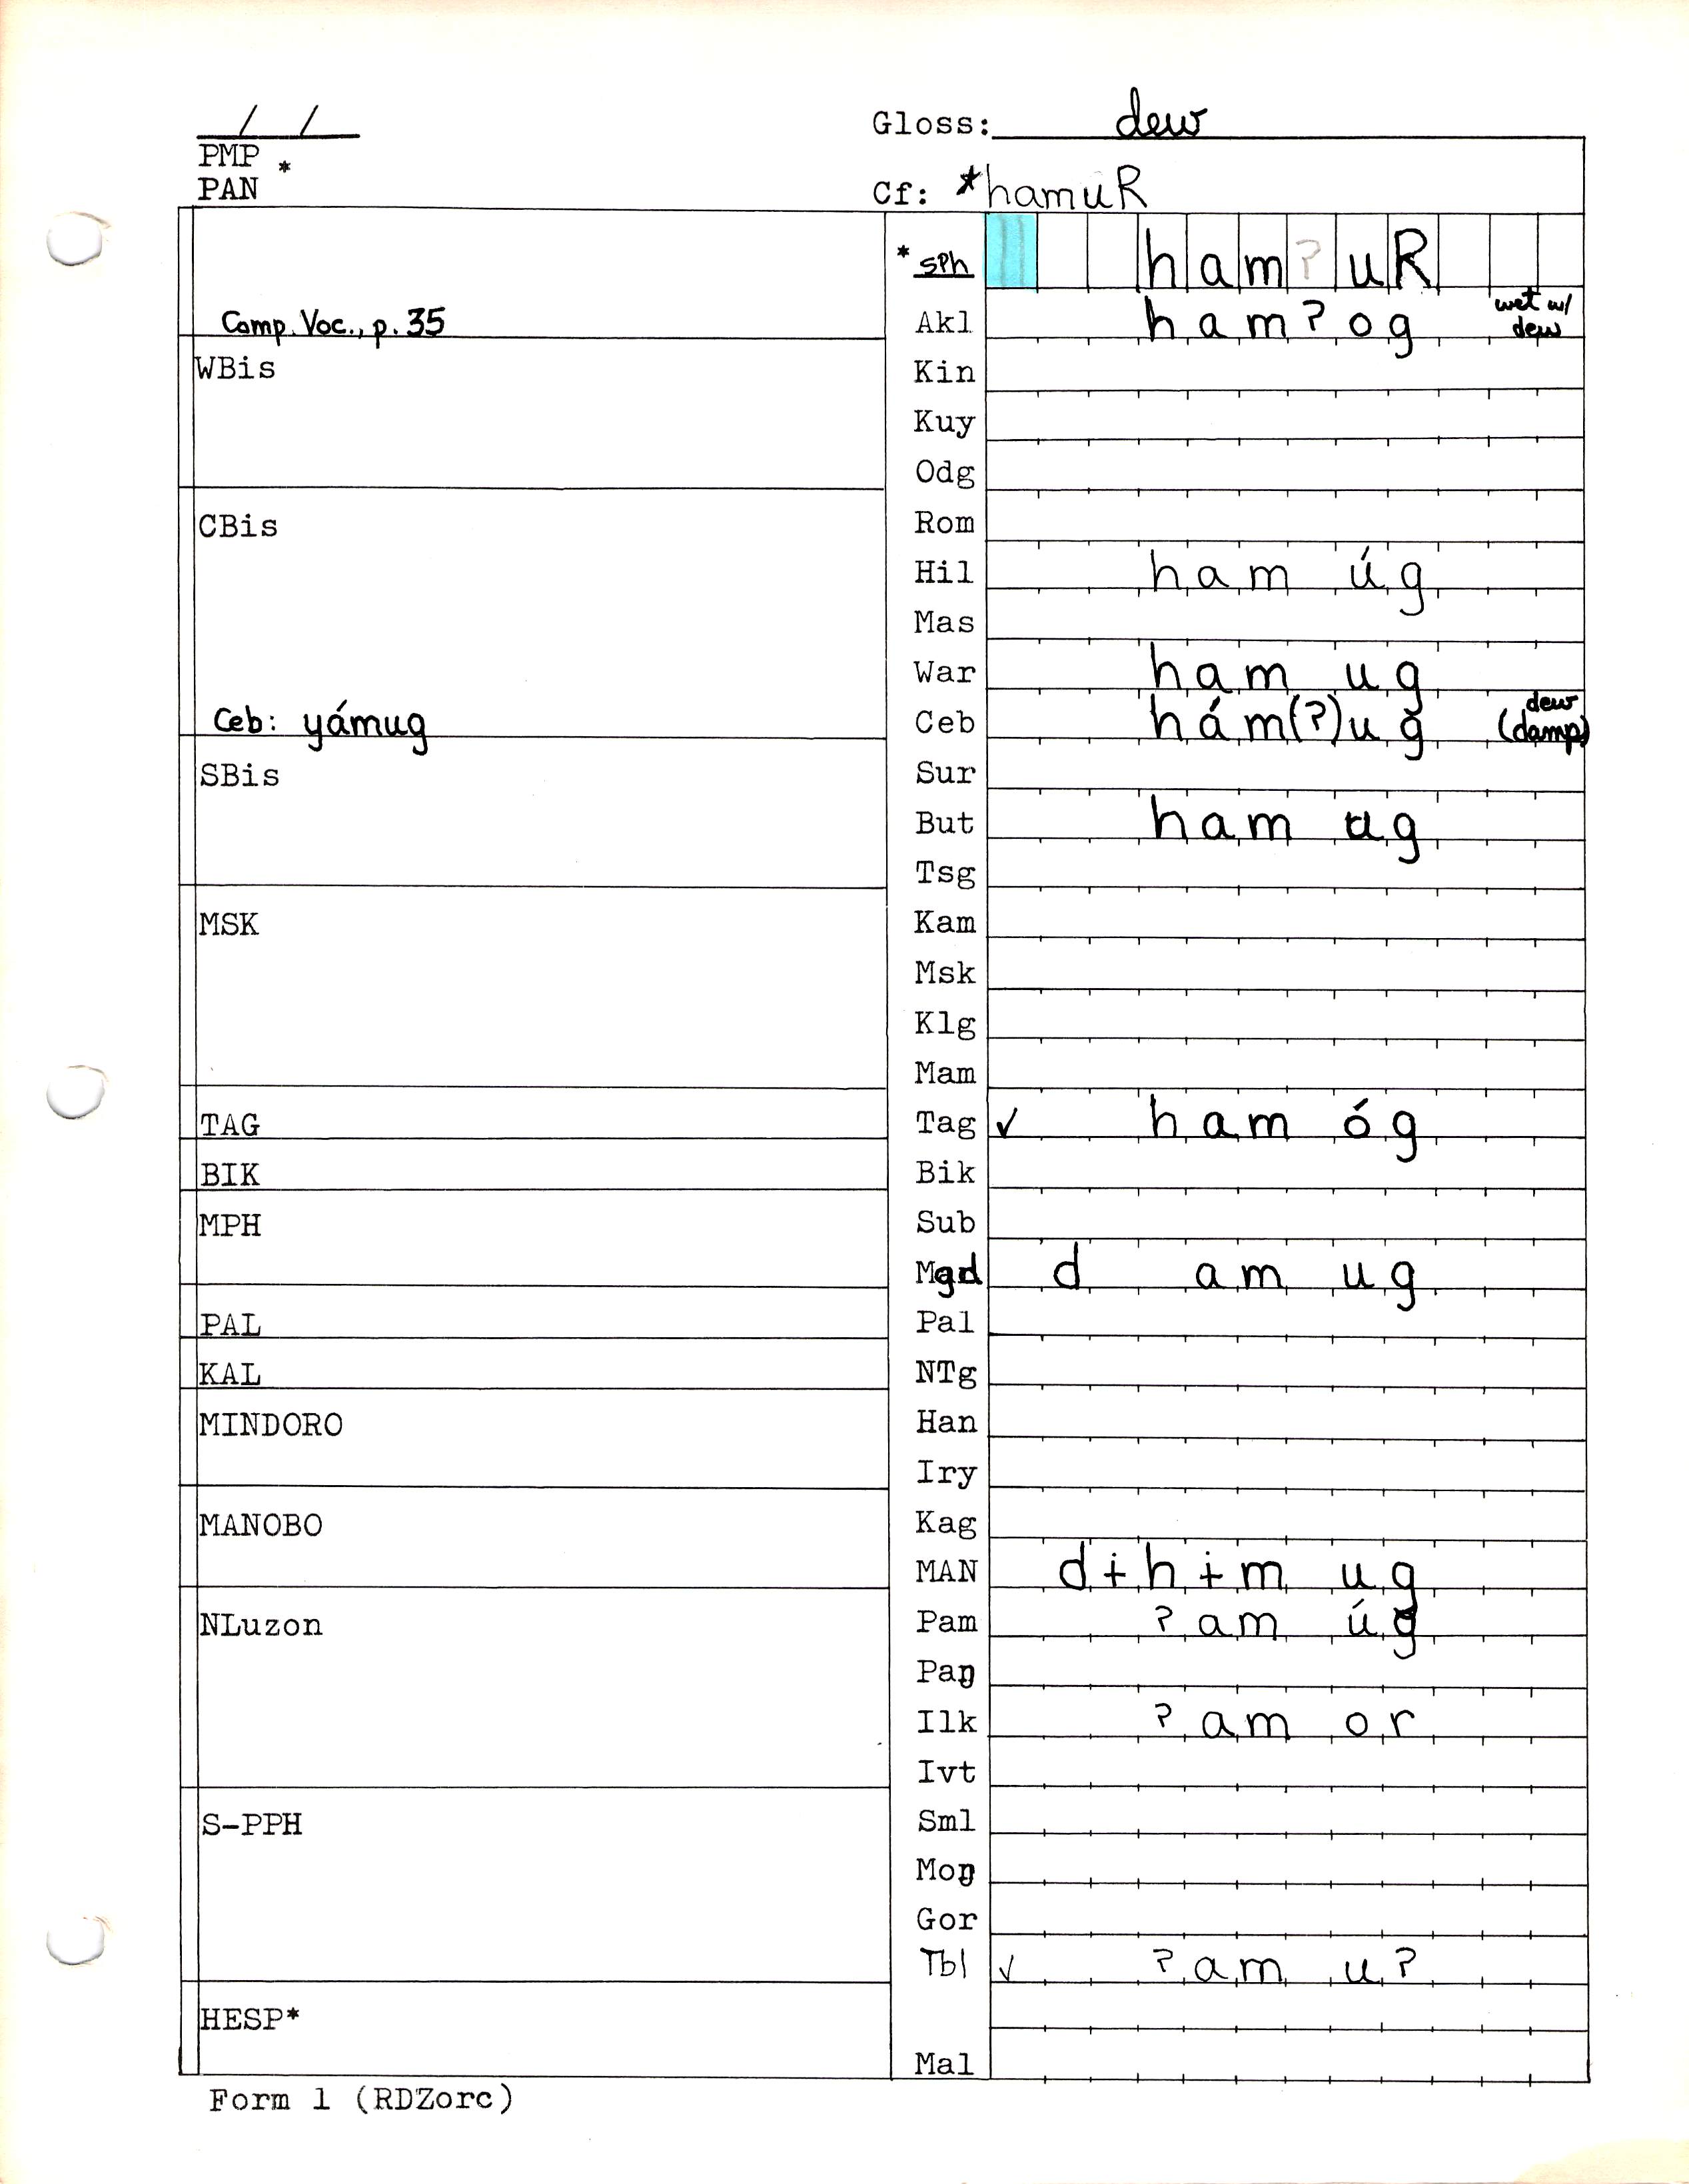 / /
Gloss: dew
PMP *
PAN
Cf: *hamuR
*sph ham?uR
Comp. Voc., p. 35
Akl ham?og wet w/ dew
WBis
Kin
Kuy
Odg
CBis
Rom
Hil hamúg
Mas
War hamug
Ceb: yámug
Ceb hám(?)ug dew (damp)
SBis
Sur
But hamug
Tsg
MSK
Kam
Msk
Klg
Mam
TAG
Tag ✓ hamóg
BIK
Bik
MPH
Sub
Mgd d amug
PAL
Pal
KAL
NTg
MINDORO
Han
Iry
MANOBO
Kag
MAN dɨhɨmug
NLuzon
Pam ?amúg
Paŋ
Ilk ?amor
Ivt
S-PPH
Sml
Moŋ
Gor
Tbl ✓ ?amu?
HESP*
Mal
Form 1 (RDZorc)